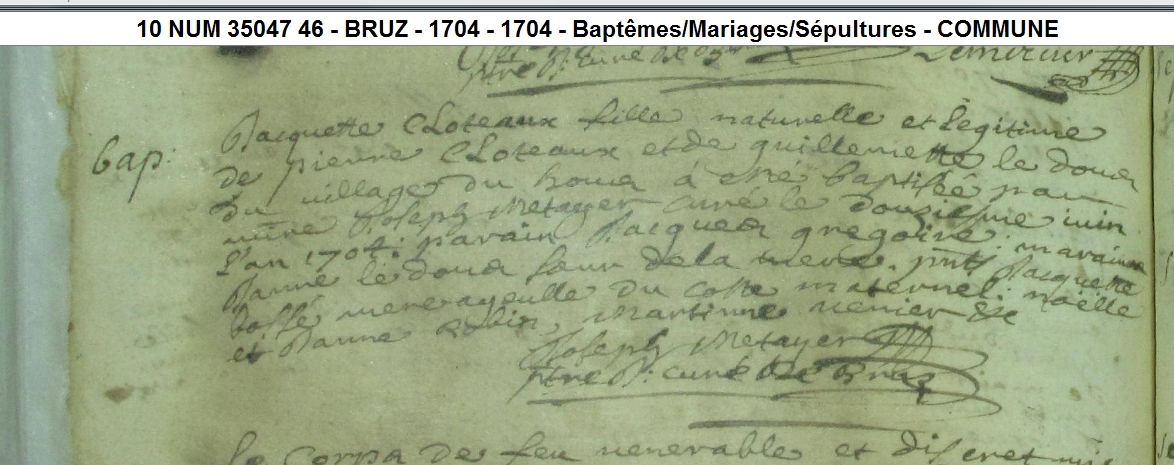 10 NUM 35047 46 - BRUZ - 1704 - 1704 - Baptêmes/Mariages/Sépultures - COMMUNE
ptre P: curé de
bap:
Jacquette CLoteaux fille naturelle et Legitime
de pierre CLoteaux et de guillemette le doua
du village du houa à esté baptisée par
mire Joseph Metayer curé le douziesme iuin
L'an 1704: parain Jacques gregoire maraine
Janne le doua sœur de la mere. pnts Jacquette
bossé mere ayeulle du costé maternel: noelle
et Janne Robin, Martinne menier &c
Joseph Metayer
ptre P: curé de Bruz
le corps de feu venerable et discret